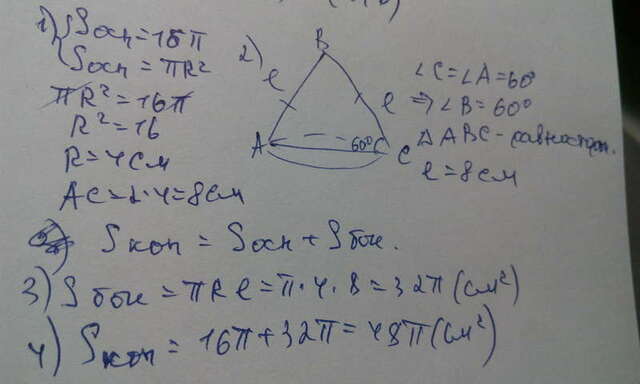 1) { Sосн = 16π
Sосн = πR²
πR² = 16π
R² = 16
R = 4 см
AC = 2·4 = 8 см
2)
B
l
l
A
60°
C
∠C = ∠A = 60°
⇒ ∠B = 60°
△ ABC – равностор.
l = 8 см
Sкон = Sосн + Sбок.
3) Sбок = πRl = π·4·8 = 32π (см²)
4) Sкон = 16π + 32π = 48π (см²)